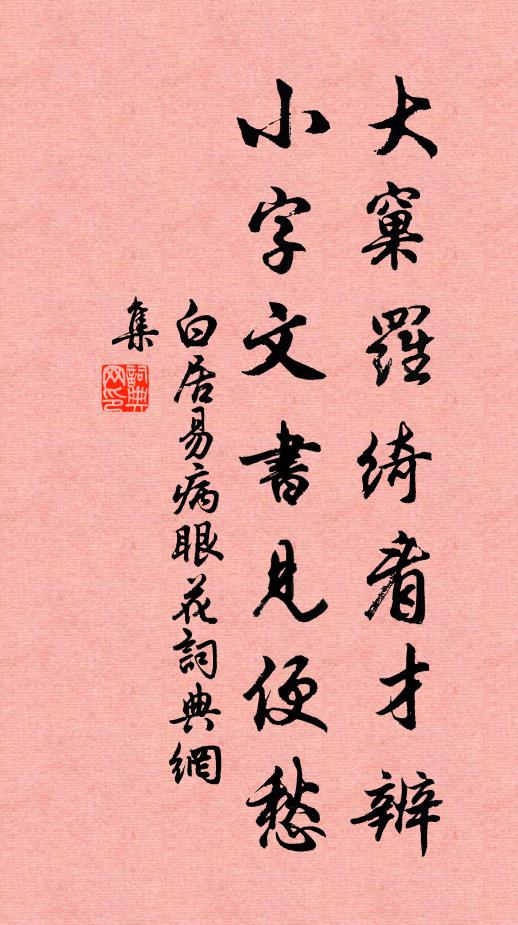 大窠羅綺看才辨
小字文書見便愁
白居易病眼花詞典網
集
詞典
网印